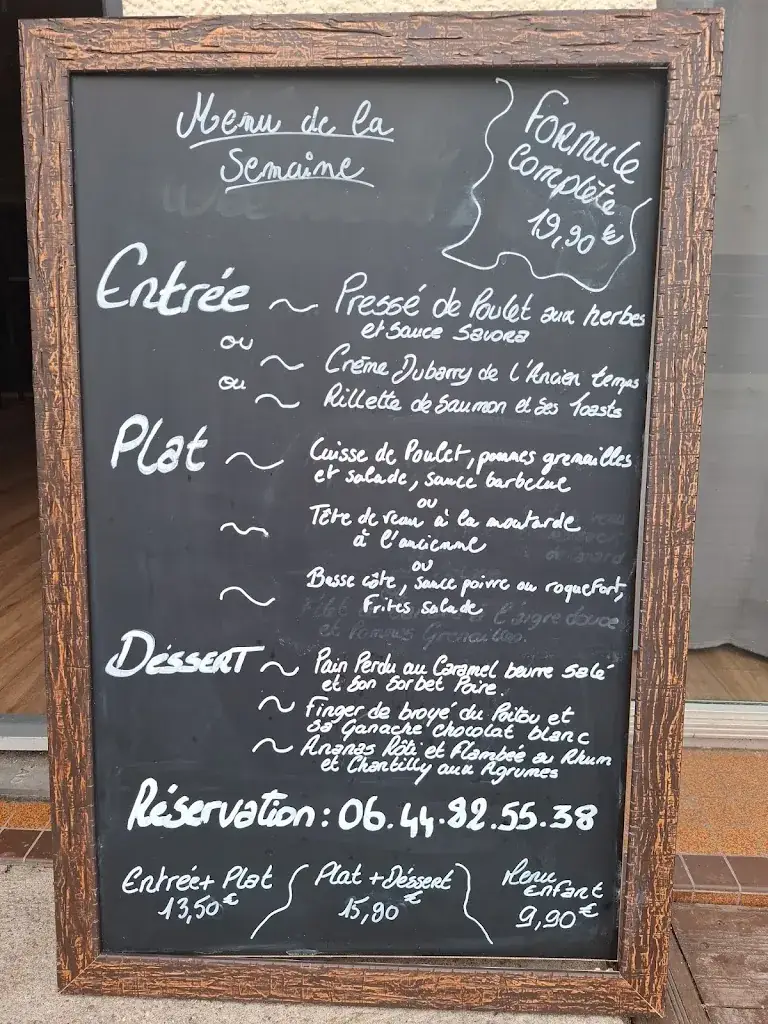 Menu de la
Semaine
FORMULE
Complète
19,90 €
Entrée ~ Pressé de Poulet aux herbes
et Sauce Savora
ou
~ Crème Dubarry de l'Ancien temps
ou
~ Rillette de Saumon et Ses Toasts
Plat ~ Cuisse de Poulet, pommes grenailles
et salade, sauce barbecue
ou
~ Tête de veau à la moutarde
à l'ancienne
ou
~ Basse côte, sauce poivre ou roquefort,
Frites salade
DéSSERT ~ Pain Perdu au Caramel beurre salé
et Son Sorbet Poire.
~ Finger de broyé du Poitou et
sa Ganache chocolat blanc
~ Ananas Rôti et Flambée au Rhum
et Chantilly aux Agrumes
Réservation : 06.44.92.55.38
Entrée + Plat
13,50 €
Plat + Déssert
15,90 €
Menu
Enfant
9,90 €